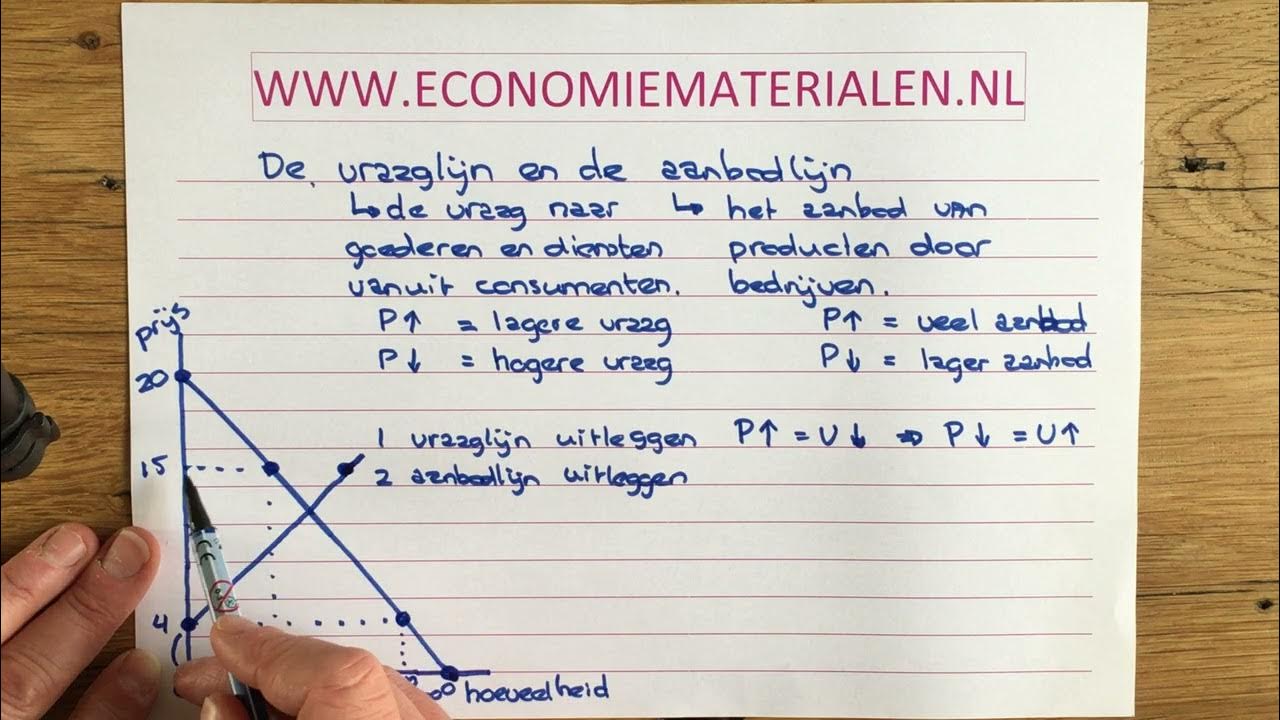 WWW.ECONOMIEMATERIALEN.NL
De vraaglijn en de aanbodlijn
↳ de vraag naar
goederen en diensten
vanuit consumenten.
↳ het aanbod van
producten door
bedrijven.
P↑ = lagere vraag
P↓ = hogere vraag
P↑ = veel aanbod
P↓ = lager aanbod
prijs
20
15
4
1 vraaglijn uitleggen P↑ = V↓ ⇒ P↓ = V↑
2 aanbodlijn uitleggen
hoeveelheid